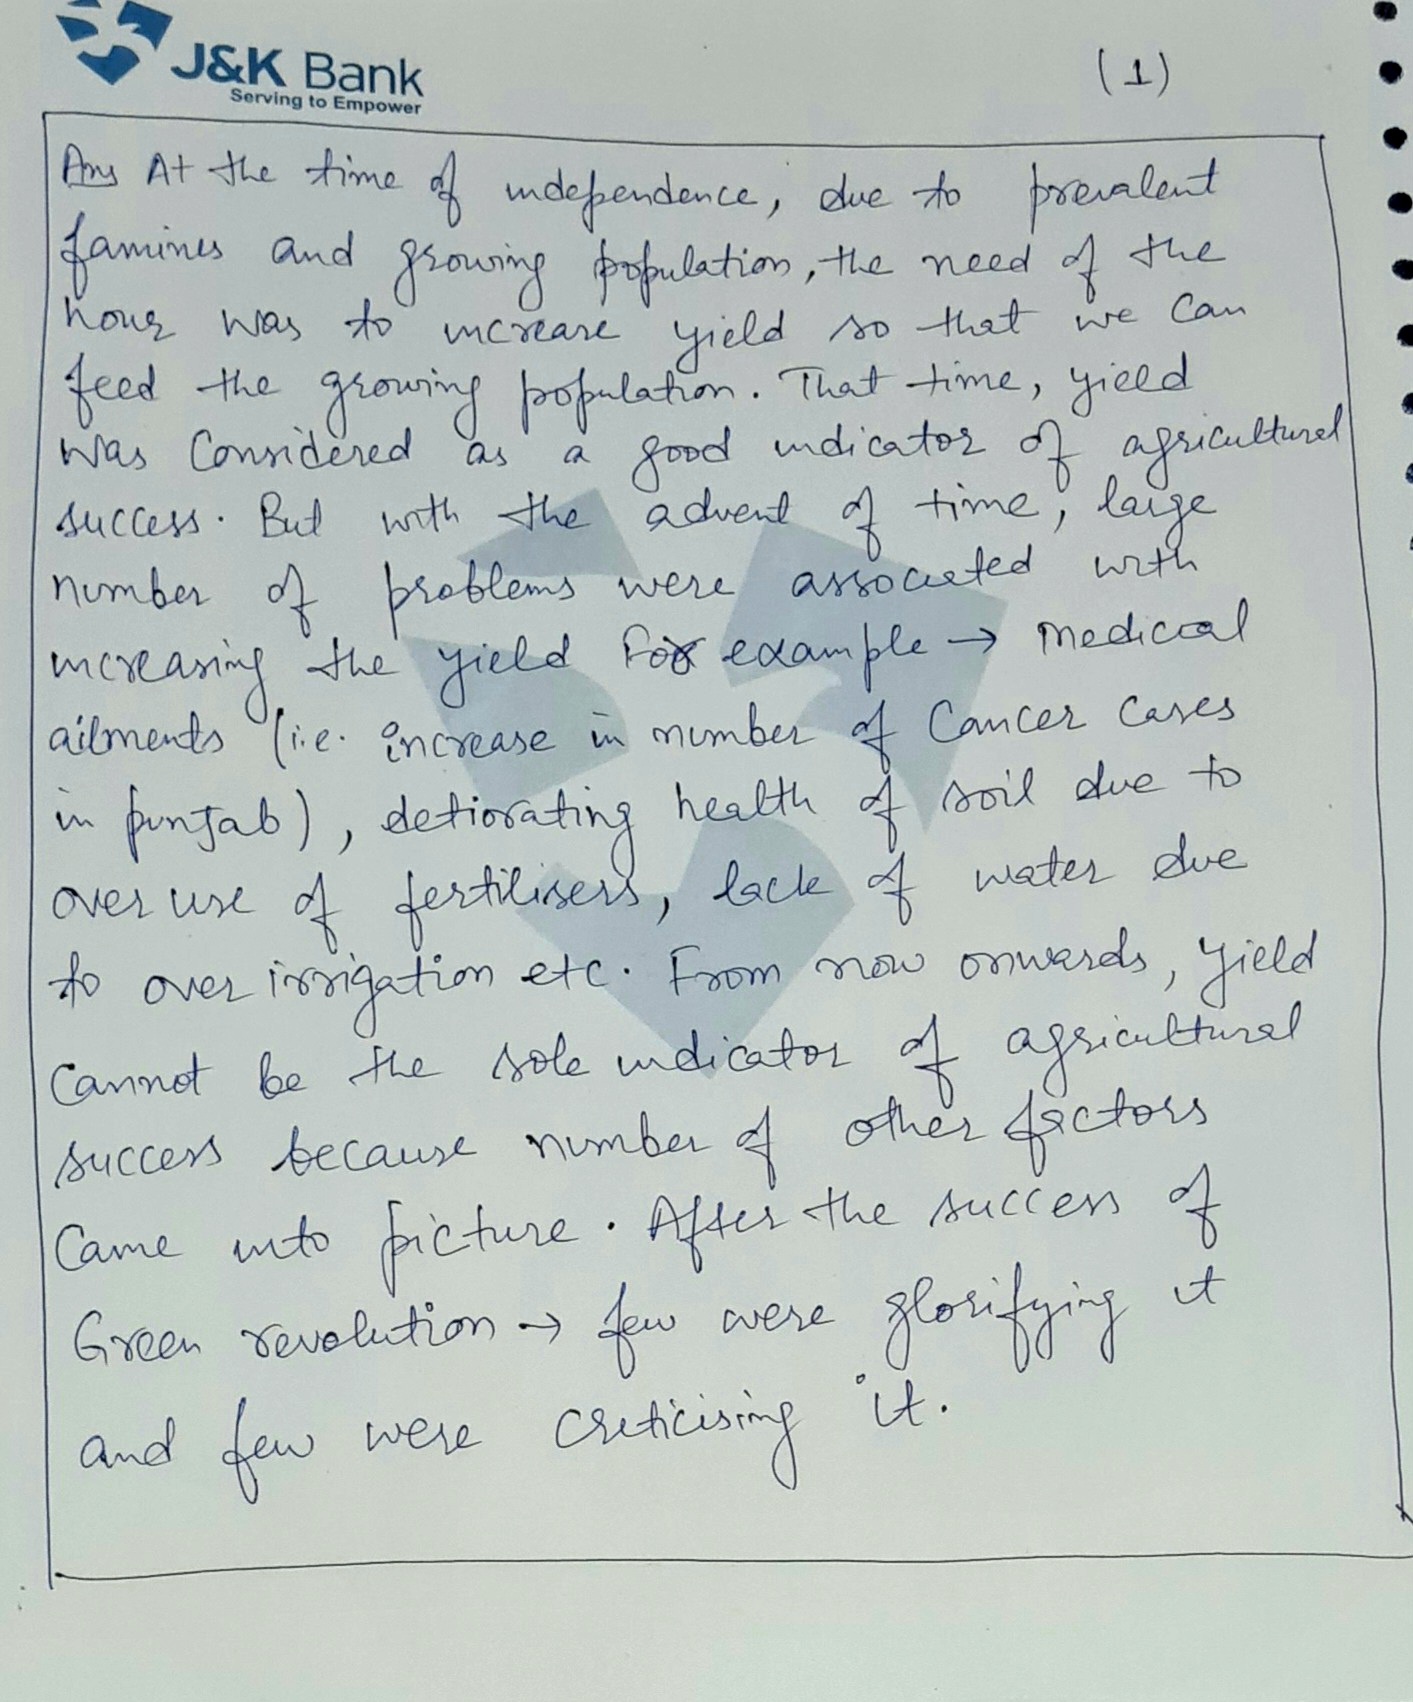 J&K Bank
Serving to Empower
(1)
Ans At the time of independence, due to prevalent
famines and growing population, the need of the
hour was to increase yield so that we can
feed the growing population. That time, yield
was Considered as a good indicator of agricultural
success. But with the advent of time, large
number of problems were associated with
increasing the yield For example → medical
ailments (i.e. increase in number of Cancer Cases
in punjab), detiorating health of soil due to
over use of fertilisers, lack of water due
to over irrigation etc. From now onwards, yield
Cannot be the sole indicator of agricultural
success because number of other factors
Came into picture. After the success of
Green revolution → few were glorifying it
and few were creticising it.